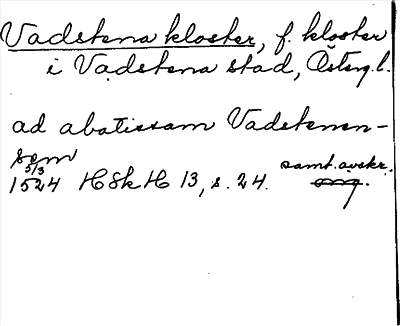 Vadstena kloster, f. kloster
i Vadstena stad, Österg.l.
ad abatissam Vadstenen-
sem
5/3
1524 HSkH 13, s. 24. samt. avskr.
orig.